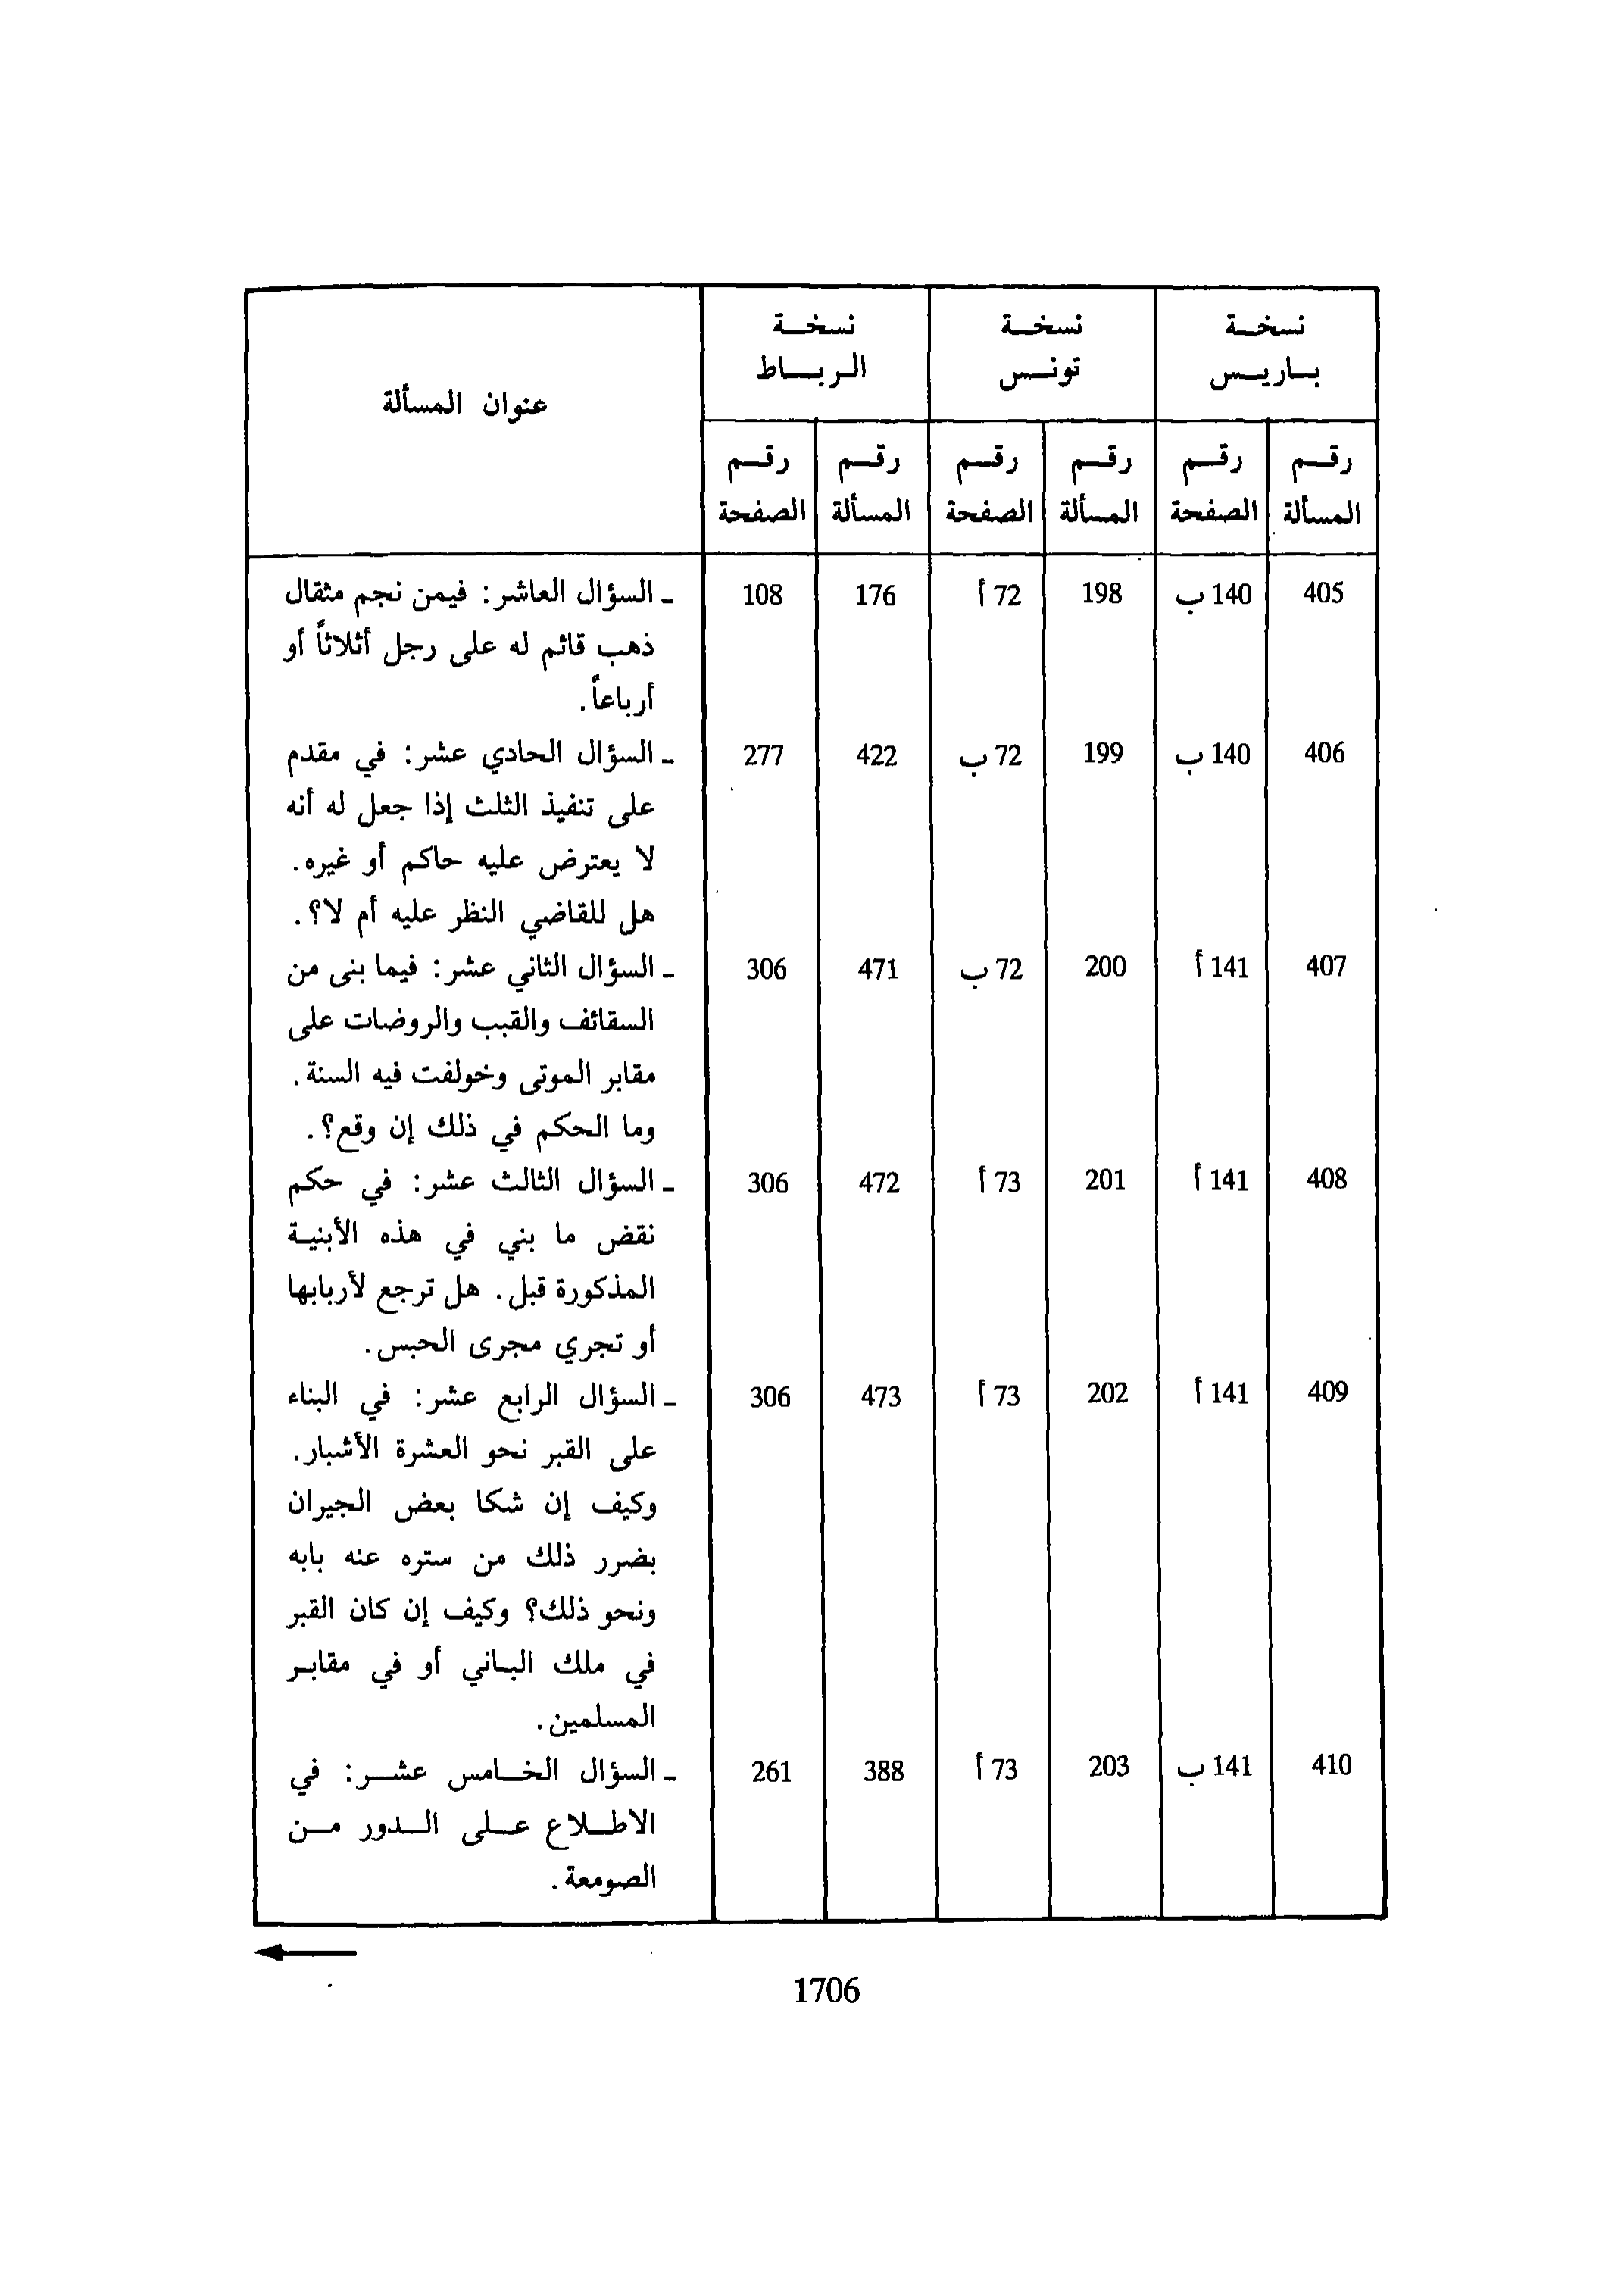 نسخة نسخة نسخة
باريس تونس الرباط عنوان المسألة
رقم رقم رقم رقم رقم رقم
المسألة الصفحة المسألة الصفحة المسألة الصفحة
405 140 ب 198 72 أ 176 108 ـ السؤال العاشر: فيمن نجم مثقال
ذهب قائم له على رجل أثلاثاً أو
أرباعاً.
406 140 ب 199 72 ب 422 277 ـ السؤال الحادي عشر: في مقدم
على تنفيذ الثلث إذا جعل له أنه
لا يعترض عليه حاكم أو غيره.
هل للقاضي النظر عليه أم لا؟.
407 141 أ 200 72 ب 471 306 ـ السؤال الثاني عشر: فيما بنى من
السقائف والقبب والروضات على
مقابر الموتى وخولفت فيه السنة.
وما الحكم في ذلك إن وقع؟.
408 141 أ 201 73 أ 472 306 ـ السؤال الثالث عشر: في حكم
نقض ما بني في هذه الأبنية
المذكورة قبل. هل ترجع لأربابها
أو تجري مجرى الحبس.
409 141 أ 202 73 أ 473 306 ـ السؤال الرابع عشر: في البناء
على القبر نحو العشرة الأشبار.
وكيف إن شكا بعض الجيران
بضرر ذلك من ستره عنه بابه
ونحو ذلك؟ وكيف إن كان القبر
في ملك الباني أو في مقابر
المسلمين.
410 141 ب 203 73 أ 388 261 ـ السؤال الخامس عشر: في
الاطلاع على الدور من
الصومعة.
1706